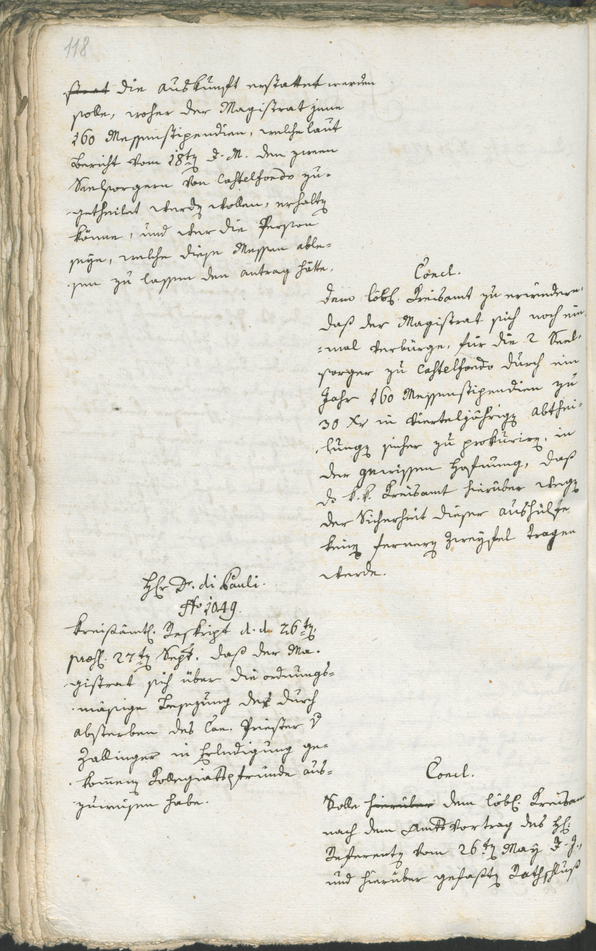 118
strat die Auskunft erstattet werden
solle, woher der Magistrat jene
160 Messenstipendien, welche laut
Bericht vom 18ten d. M. den zween
Seelsorgern von Castelfondo zu-
getheilet werden wollen, erhalten
könne, und wer die Person
seye, welche diese Messen able-
sen zu lassen den Antrag hätte.
Concl.
Dem löbl. Kreisamt zu erwiedern
daß der Magistrat sich noch ein-
mal verbürge, für die 2 Seel-
sorger zu Castelfondo durch ein
Jahr 160 Messenstipendien zu
30 Xr in vierteljährigen Abthei-
lungen sicher zu prokuriren, in
der gewissen Hofnung, daß
d. k. k. Kreisamt hierüber wegen
der Sicherheit dieser Aushülfe
keinen fernern Zweyfel tragen
werde.
Hr Dr. di Pauli.
No 1049.
Kreisämtl. Reskript d. d. 26ten
praes. 27ten Sept. daß der Ma-
gistrat sich über die ordnungs-
mäsige Besezung der durch
Absterben des Can. Priester v
Zallinger in Erledigung ge-
kommenen Kollegiatpfründe aus-
zuweisen habe.
Concl.
Solle hierüber dem löbl. Kreisamt
nach dem Amtsvortrag des H.
Referenten vom 26ten May d. J.,
und hierüber gefaßten Rathschluß